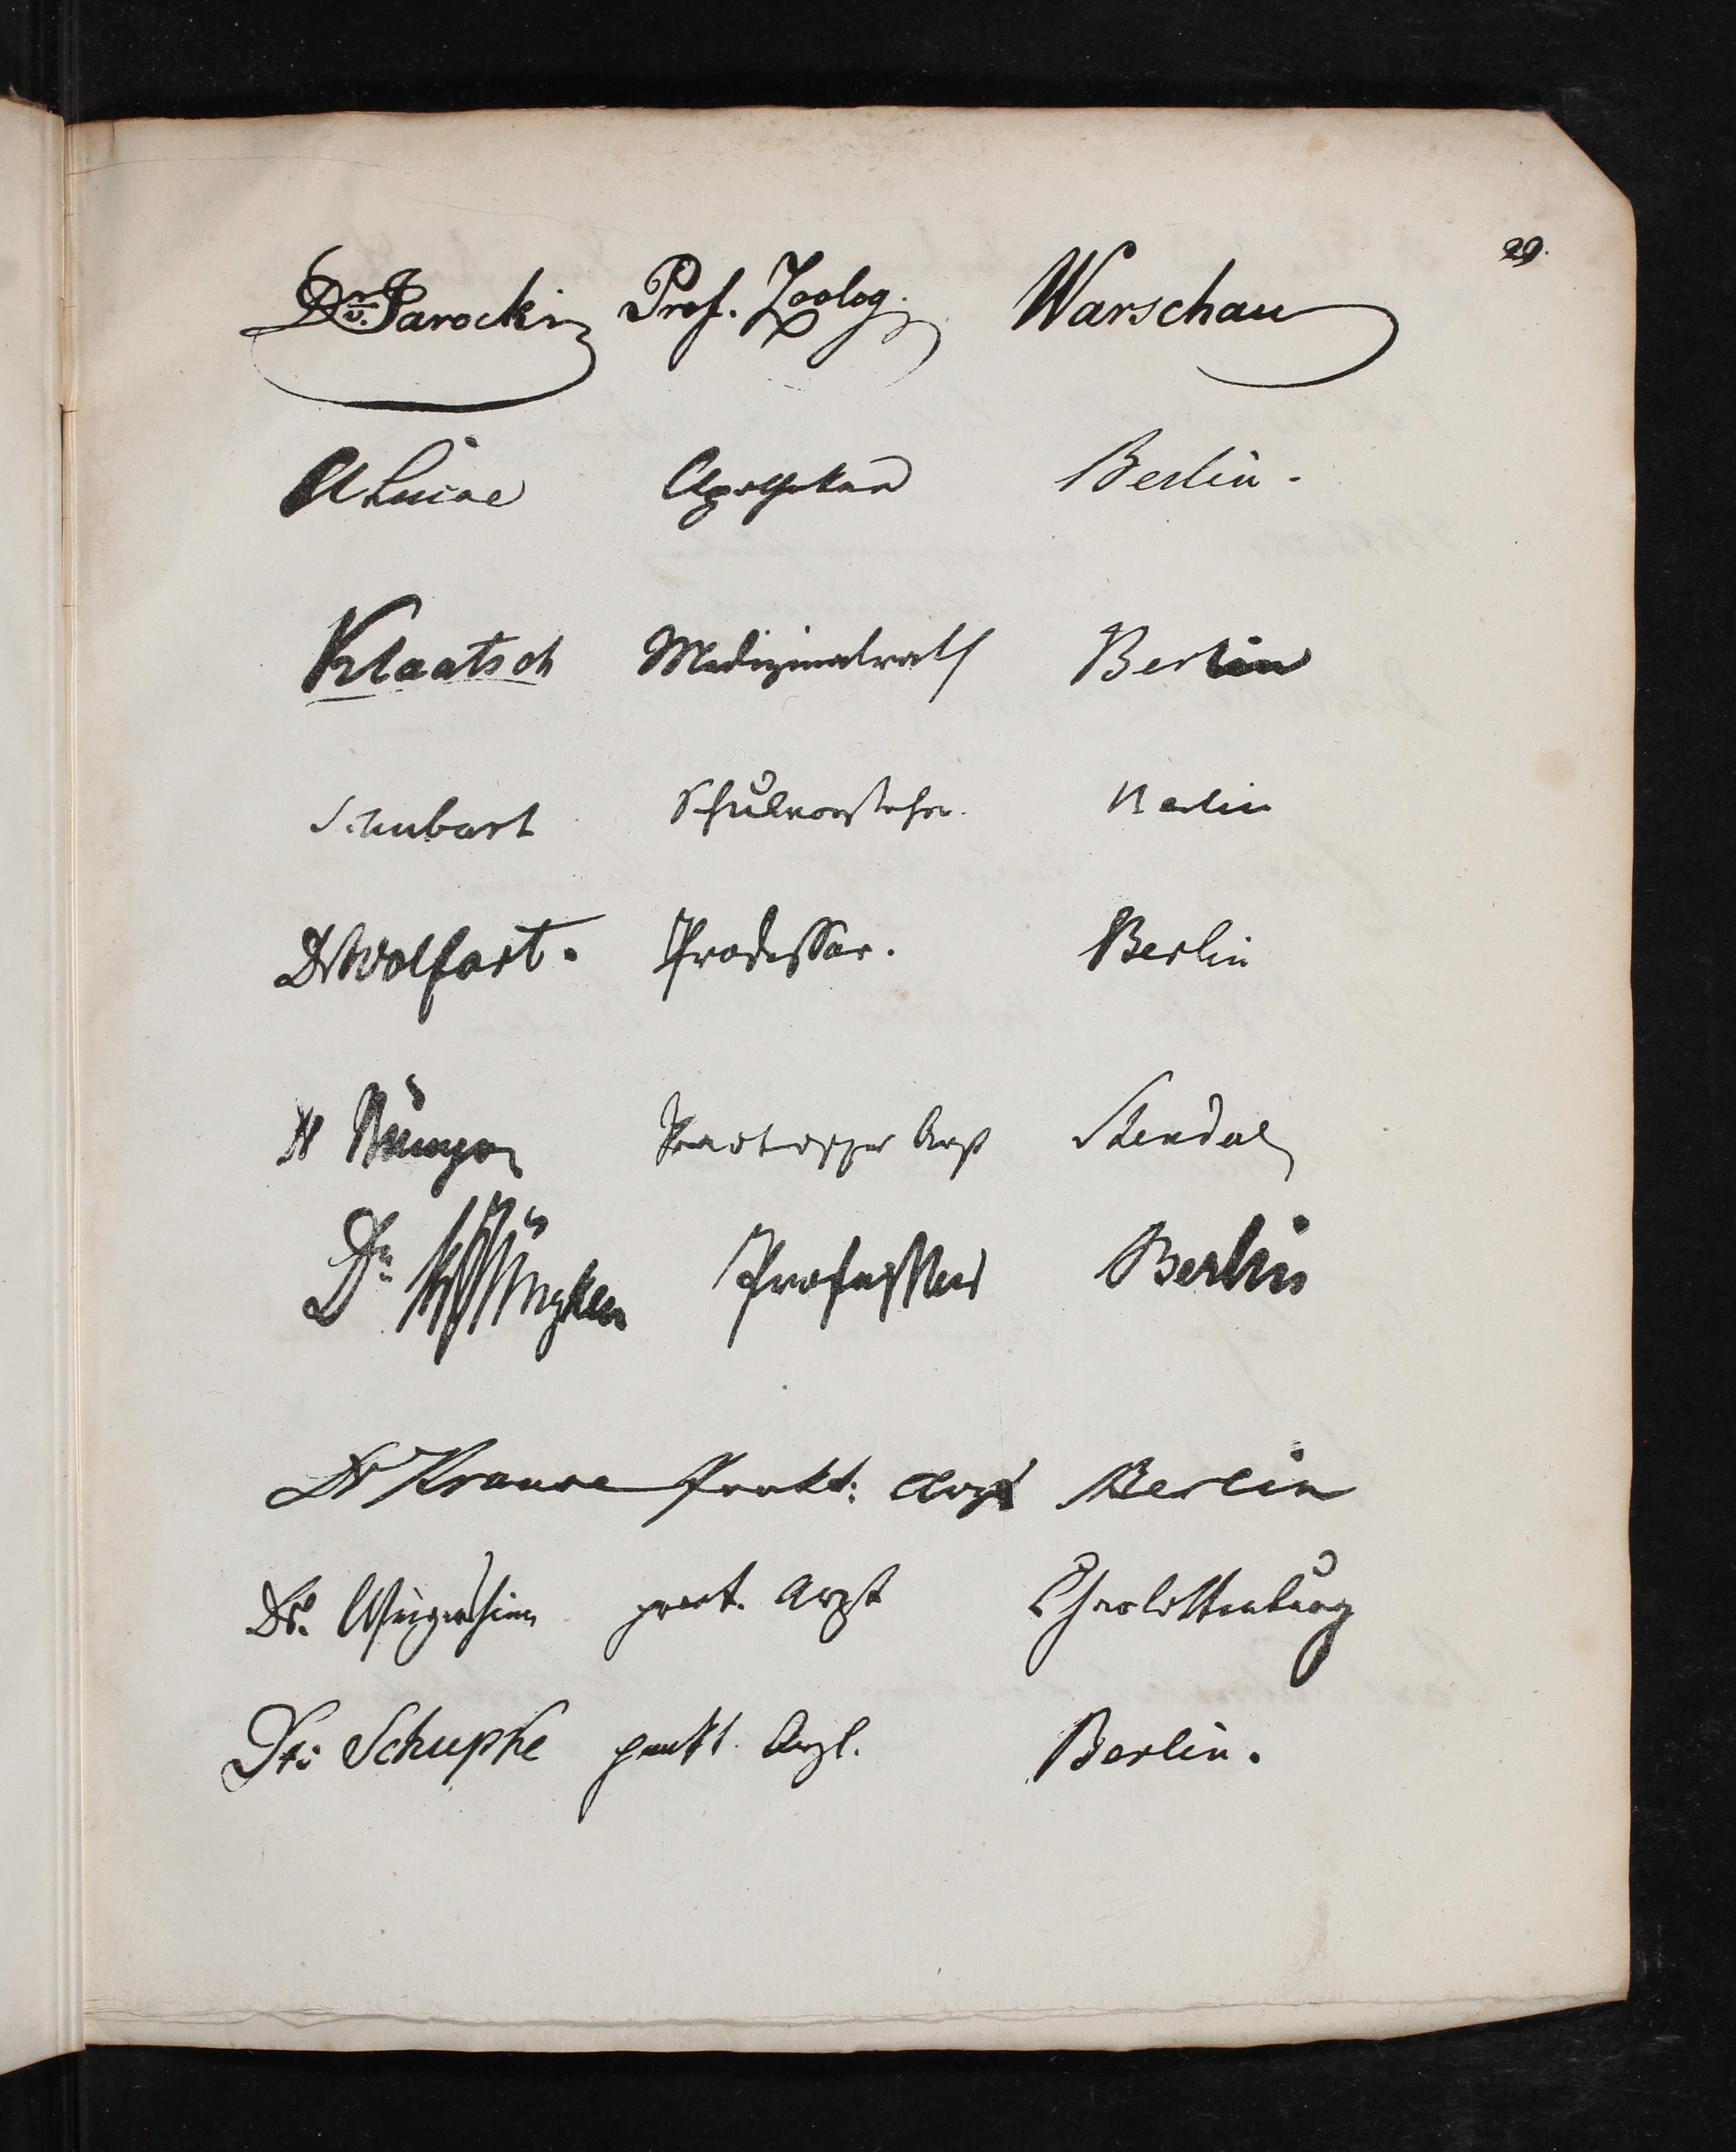 29.
Dr. Jarocki Prof. Zoolog. Warschau
Apotheker Berlin.
Klaatsch Medizinalrath Berlin
Schubart Schulvorsteher. Berlin
Dr Wolfart. Professor. Berlin
Dr Practischer Arzt Stendal
Dr Jüngken Professor Berlin
Dr Krause Prakt: Arzt Berlin
Dr. pract. Arzt Charlottenburg
Dr: Schupke prakt. Arzt. Berlin.